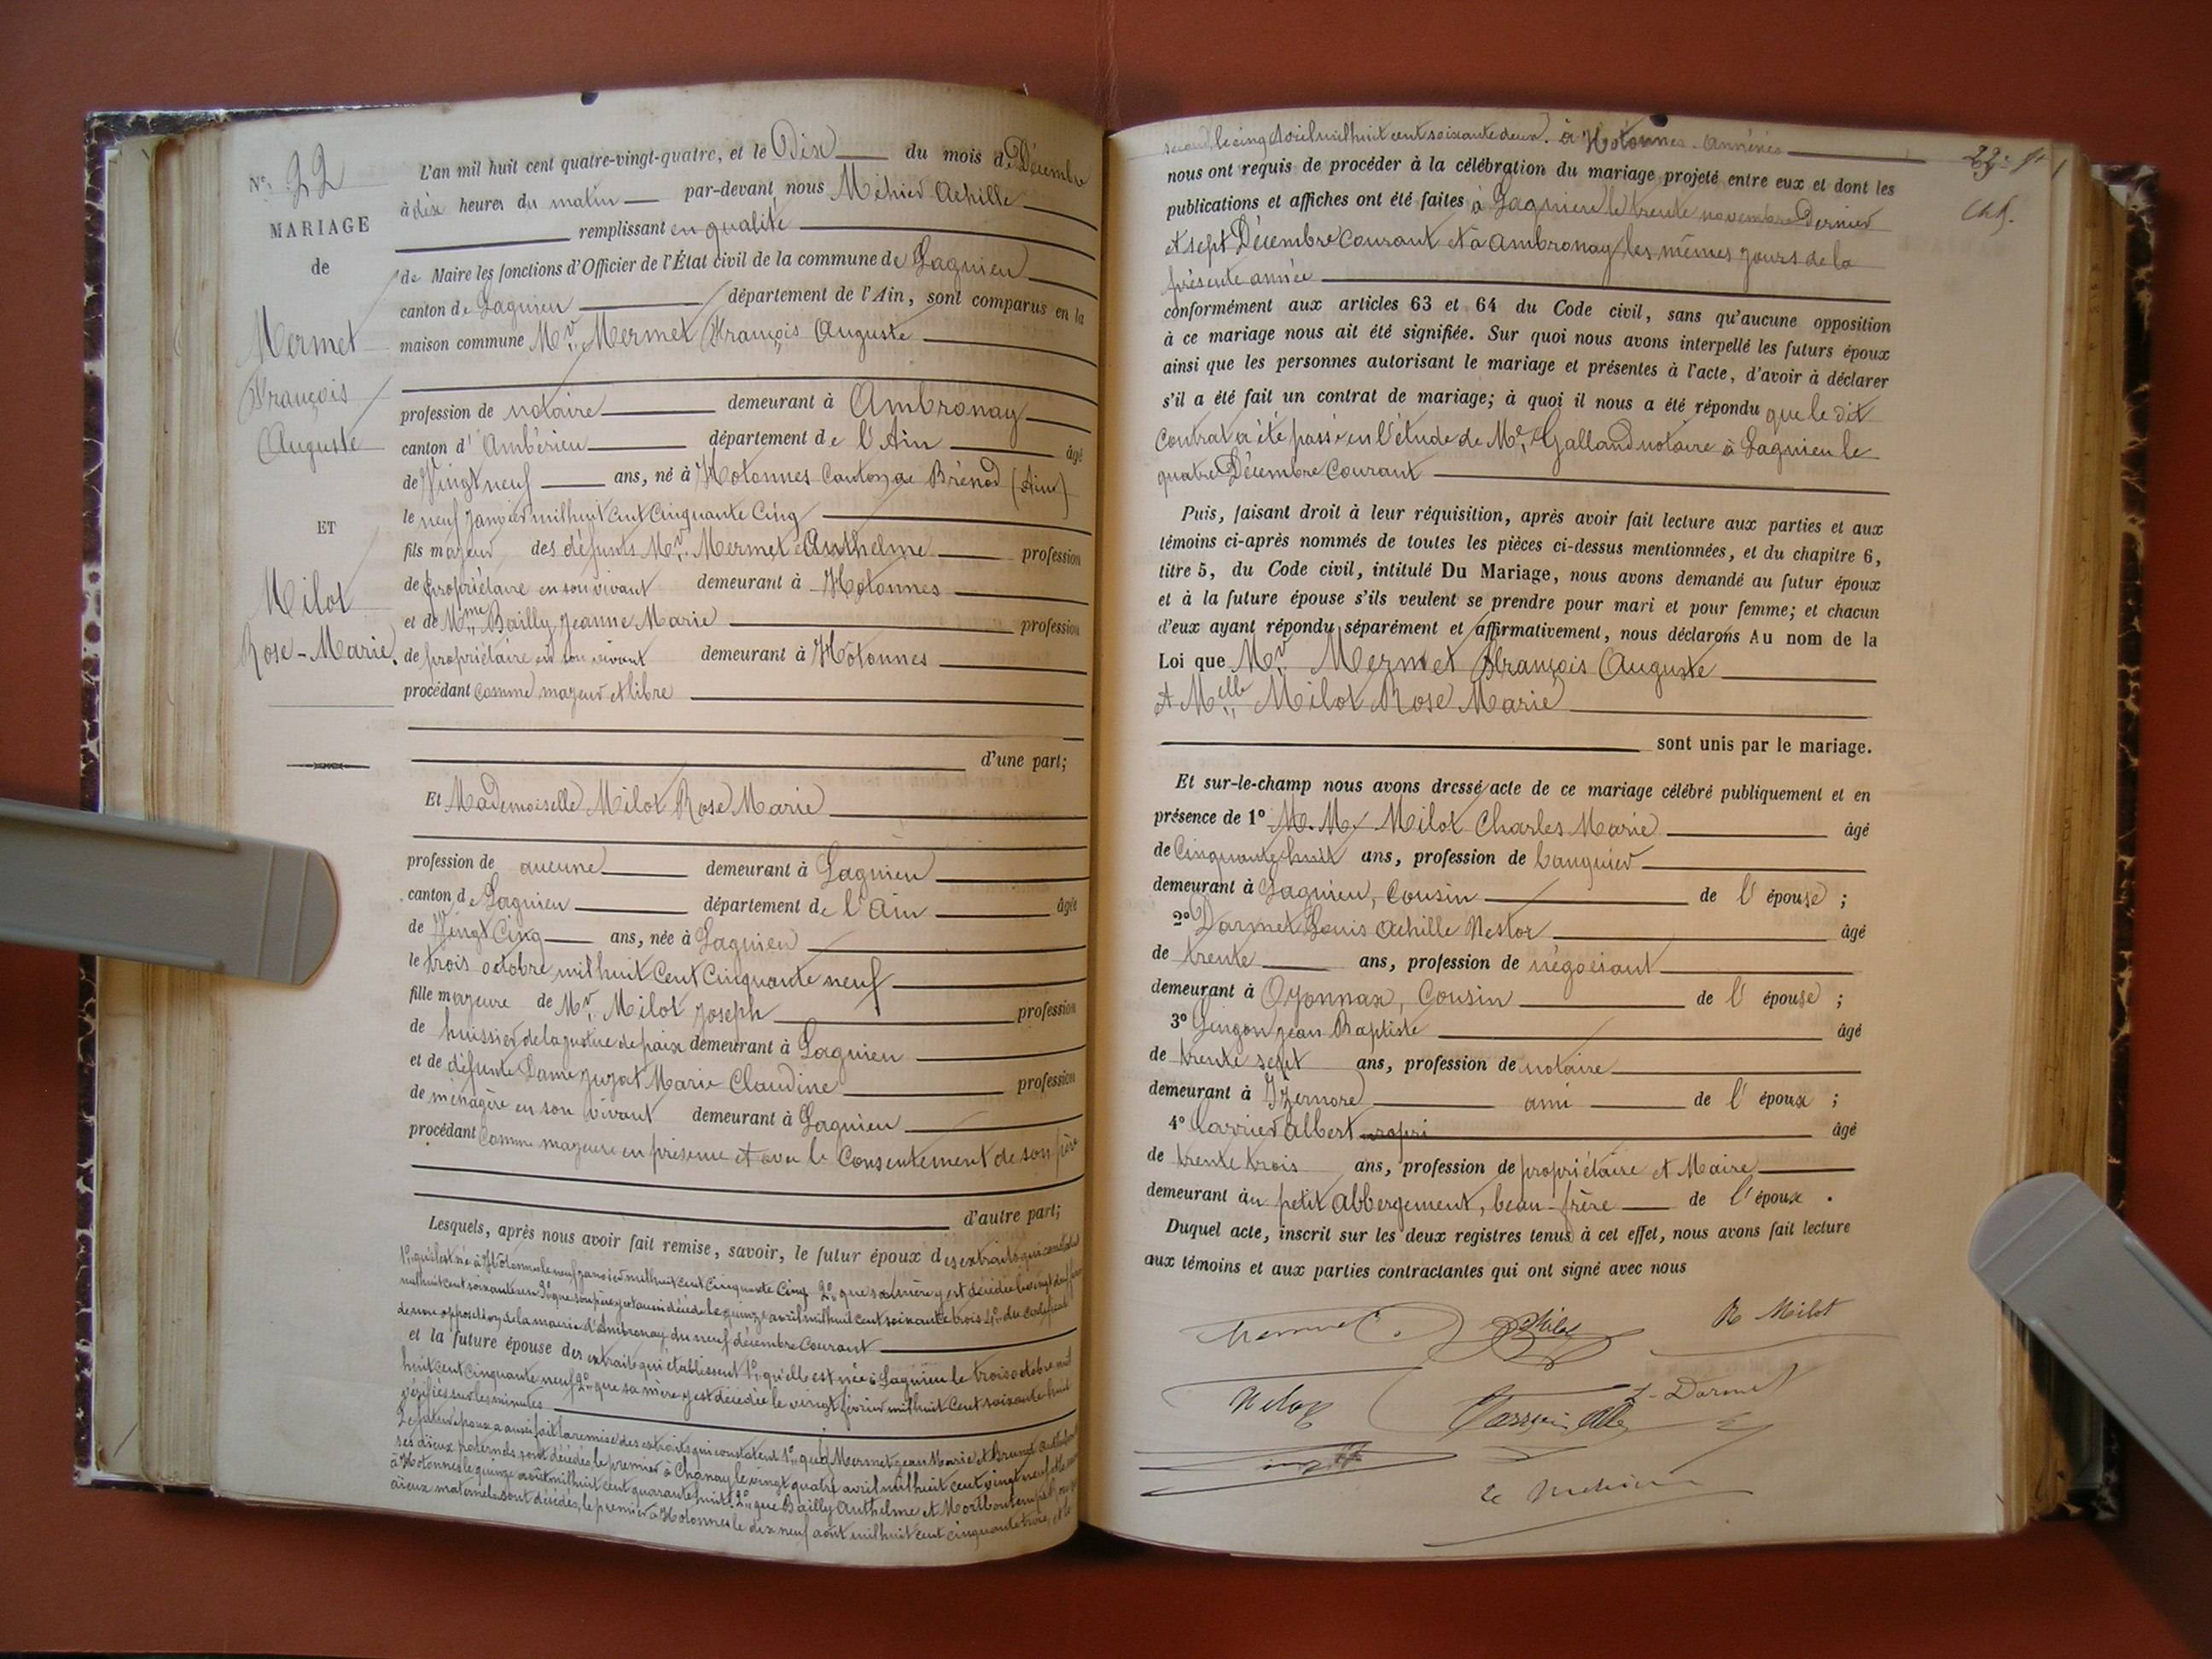 N° 22
MARIAGE
de
Mermet
François
Auguste
ET
Milot
Rose-Marie.
L'an mil huit cent quatre-vingt-quatre, et le Dix du mois de Décembre
à dix heures du matin par-devant nous Méhier Achille
remplissant en qualité
de Maire les fonctions d'Officier de l'État civil de la commune de Lagnieu
canton de Lagnieu département de l'Ain, sont comparus en la
maison commune Mr. Mermet François Auguste
profession de notaire demeurant à Ambronay
canton d' Ambérieu département de l'Ain âgé
de Vingt neuf ans, né à Hotonnes Canton de Brénod (Ain)
le neuf janvier mil huit Cent Cinquante Cinq
fils majeur des défunts Mr. Mermet Anthelme profession
de propriétaire en son vivant demeurant à Hotonnes
et de Mme Bailly Jeanne Marie profession
de propriétaire en son vivant demeurant à Hotonnes
procédant Comme majeur et libre
d'une part;
Et Mademoiselle Milot Rose Marie
profession de aucune demeurant à Lagnieu
canton de Lagnieu département de l'Ain âgée
de Vingt Cinq ans, née à Lagnieu
le trois octobre mil huit Cent Cinquante neuf
fille majeure de Mr. Milot Joseph profession
de huissier de la justice de paix demeurant à Lagnieu
et de défunte Dame Jujat Marie Claudine profession
de ménagère en son vivant demeurant à Lagnieu
procédant Comme majeure en présence et avec le Consentement de son père
d'autre part;
Lesquels, après nous avoir fait remise, savoir, le futur époux des extraits qui constatent
1° qu'il est né à Hotonnes le neuf janvier mil huit cent Cinquante Cinq 2° que sa mère y est décédée le vingt
mil huit cent soixante 3° que son père y est aussi décédé le quinze avril mil huit cent soixante trois 4° du certificat
de non opposition de la mairie d'Ambronay du neuf décembre Courant
et la future épouse des extraits qui établissent 1° qu'elle est née à Lagnieu le trois octobre mil
huit cent cinquante neuf 2° que sa mère y est décédée le vingt février mil huit Cent soixante huit
vérifiés sur les minutes.
Le futur époux a aussi fait la remise des extraits qui constatent 1° que Mermet Jean Marie et Brunet
ses aïeux paternels sont décédés, le premier à Chanay le vingt quatre avril mil huit cent vingt neuf et
à Hotonnes le quinze août mil huit cent quarante huit. 2° que Bailly Anthelme et
aïeux maternels sont décédés, le premier à Hotonnes le dix neuf août mil huit cent cinquante trois, et le
second, le cinq avril mil huit cent soixante deux. à Hotonnes.
nous ont requis de procéder à la célébration du mariage projeté entre eux et dont les
publications et affiches ont été faites à Lagnieu le trente novembre Dernier
et sept Décembre Courant et à Ambronay les mêmes jours de la
présente année
conformément aux articles 63 et 64 du Code civil, sans qu'aucune opposition
à ce mariage nous ait été signifiée. Sur quoi nous avons interpellé les futurs époux
ainsi que les personnes autorisant le mariage et présentes à l'acte, d'avoir à déclarer
s'il a été fait un contrat de mariage; à quoi il nous a été répondu que le dit
Contrat a été passé en l'étude de Me. Galland notaire à Lagnieu le
quatre Décembre Courant
Puis, faisant droit à leur réquisition, après avoir fait lecture aux parties et aux
témoins ci-après nommés de toutes les pièces ci-dessus mentionnées, et du chapitre 6,
titre 5, du Code civil, intitulé Du Mariage, nous avons demandé au futur époux
et à la future épouse s'ils veulent se prendre pour mari et pour femme; et chacun
d'eux ayant répondu séparément et affirmativement, nous déclarons Au nom de la
Loi que Mr. Mermet François Auguste
et Melle Milot Rose Marie
sont unis par le mariage.
Et sur-le-champ nous avons dressé acte de ce mariage célébré publiquement et en
présence de 1° M. M. Milot Charles Marie âgé
de Cinquante huit ans, profession de banquier
demeurant à Lagnieu, Cousin de l'épouse;
2° Darmet Louis Achille Nestor âgé
de trente ans, profession de négociant
demeurant à Oyonnax, Cousin de l'épouse;
3° Gingon Jean Baptiste âgé
de trente sept ans, profession de notaire
demeurant à Izernore ami de l'époux;
4° Carrier Albert propri âgé
de trente trois ans, profession de propriétaire et Maire
demeurant au petit Abbergement, beau-frère de l'époux.
Duquel acte, inscrit sur les deux registres tenus à cet effet, nous avons fait lecture
aux témoins et aux parties contractantes qui ont signé avec nous
Mermet Milot R Milot
Milot L. Darmet